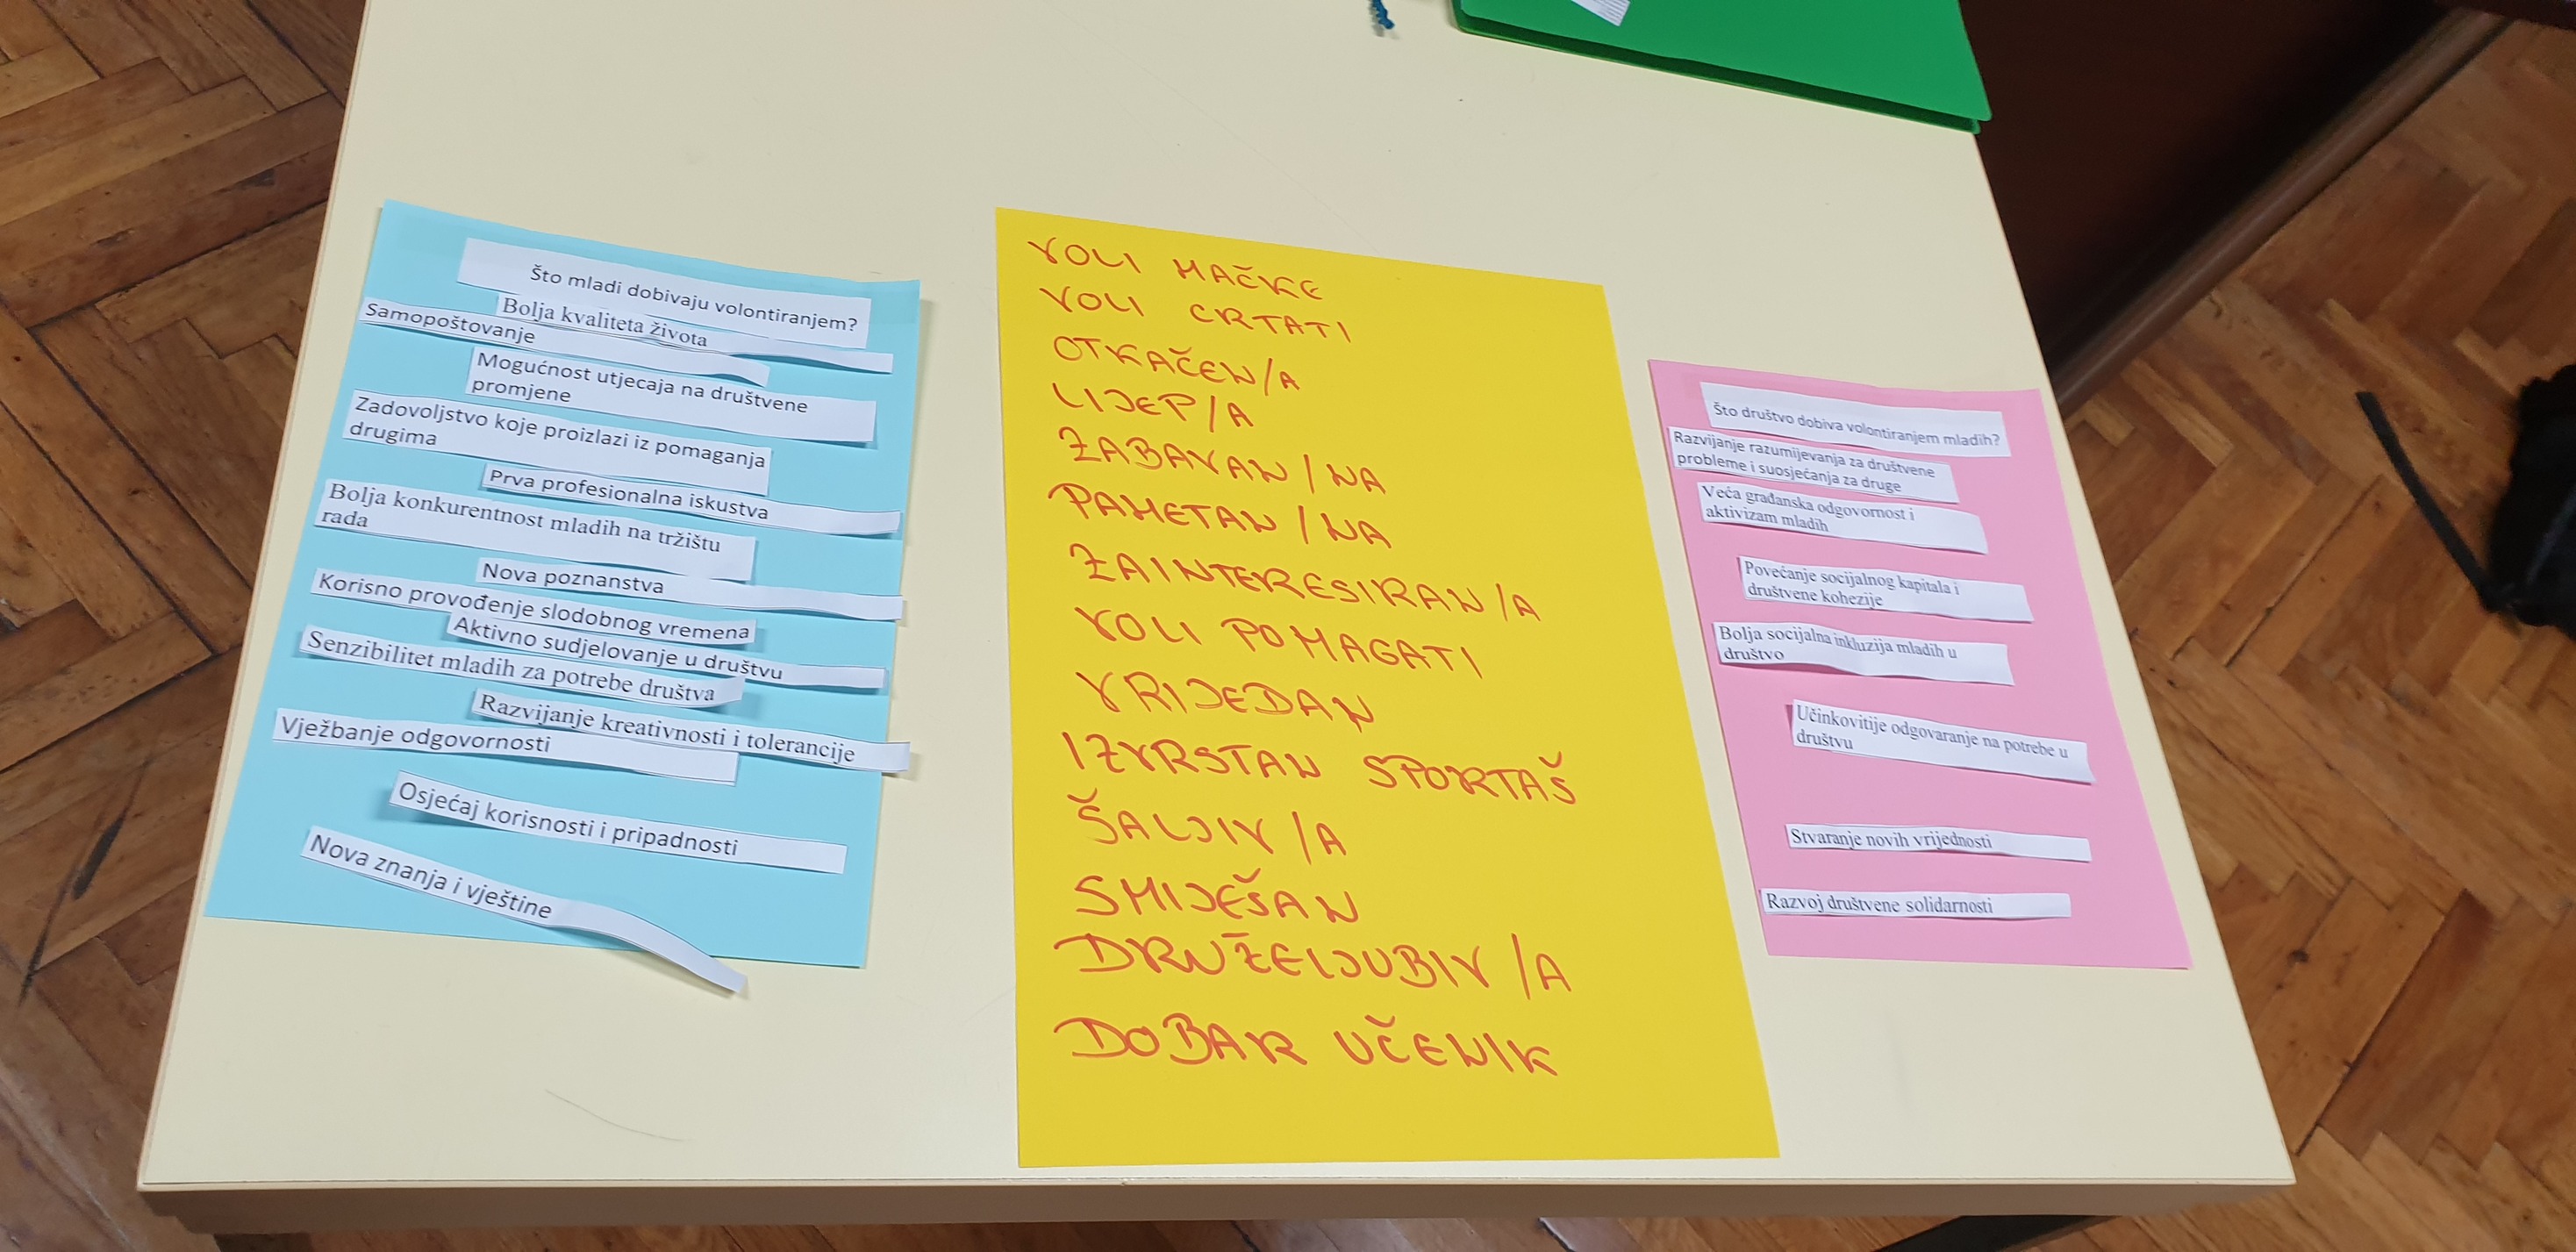 Što mladi dobivaju volontiranjem?
Bolja kvaliteta života
Samopoštovanje
Mogućnost utjecaja na društvene
promjene
Zadovoljstvo koje proizlazi iz pomaganja
drugima
Prva profesionalna iskustva
Bolja konkurentnost mladih na tržištu
rada
Nova poznanstva
Korisno provođenje slodobnog vremena
Aktivno sudjelovanje u društvu
Senzibilitet mladih za potrebe društva
Razvijanje kreativnosti i tolerancije
Vježbanje odgovornosti
Osjećaj korisnosti i pripadnosti
Nova znanja i vještine
VOLI MAČKE
VOLI CRTATI
OTKAČEN/A
LIJEP/A
ZABAVAN/NA
PAMETAN/NA
ZAINTERESIRAN/A
VOLI POMAGATI
VRIJEDAN
IZVRSTAN SPORTAŠ
ŠALJIV/A
SMIJEŠAN
DRUŽELJUBIV/A
DOBAR UČENIK
Što društvo dobiva volontiranjem mladih?
Razvijanje razumijevanja za društvene
probleme i suosjećanja za druge
Veća građanska odgovornost i
aktivizam mladih
Povećanje socijalnog kapitala i
društvene kohezije
Bolja socijalna inkluzija mladih u
društvo
Učinkovitije odgovaranje na potrebe u
društvu
Stvaranje novih vrijednosti
Razvoj društvene solidarnosti